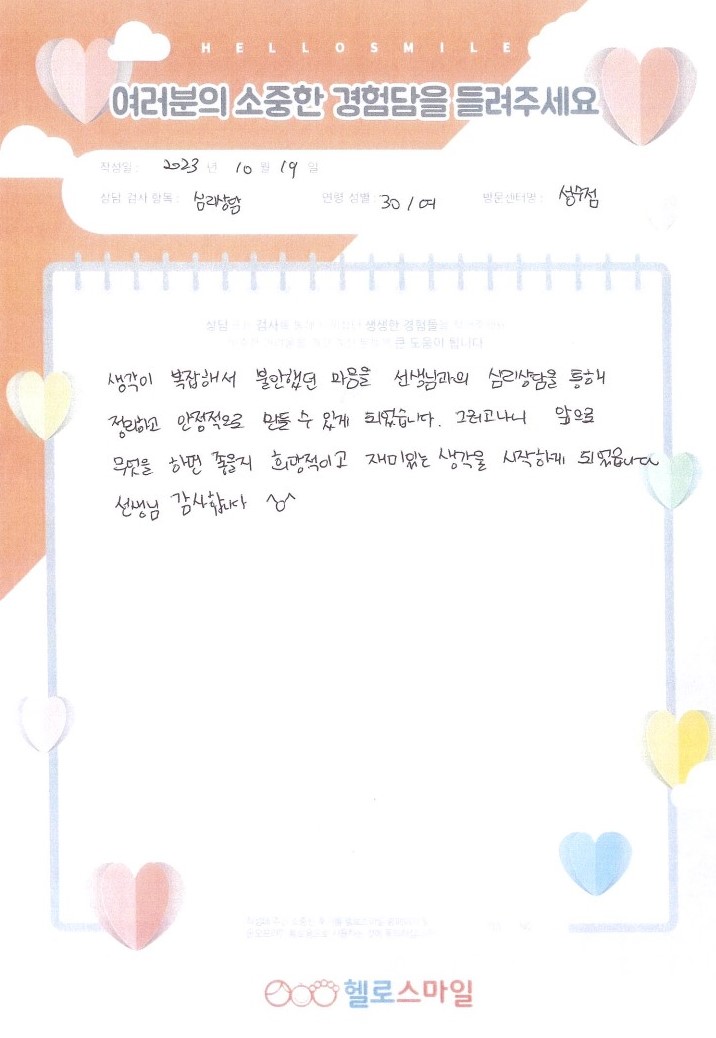 HELLOSMILE
여러분의 소중한 경험담을 들려주세요
작성일 : 2023 년 10 월 19 일
상담 검사 항목 : 심리상담 연령 성별 : 30 / 여 방문센터명 : 성수점
상담 검사 생생한 경험들
큰 도움이 됩니다
생각이 복잡해서 불안했던 마음을 선생님과의 심리상담을 통해
정리하고 안정적으로 만들 수 있게 되었습니다. 그러고나니 앞으로
무엇을 하면 좋을지 희망적이고 재미있는 생각을 시작하게 되었습니다
선생님 감사합니다 ^o^
헬로스마일